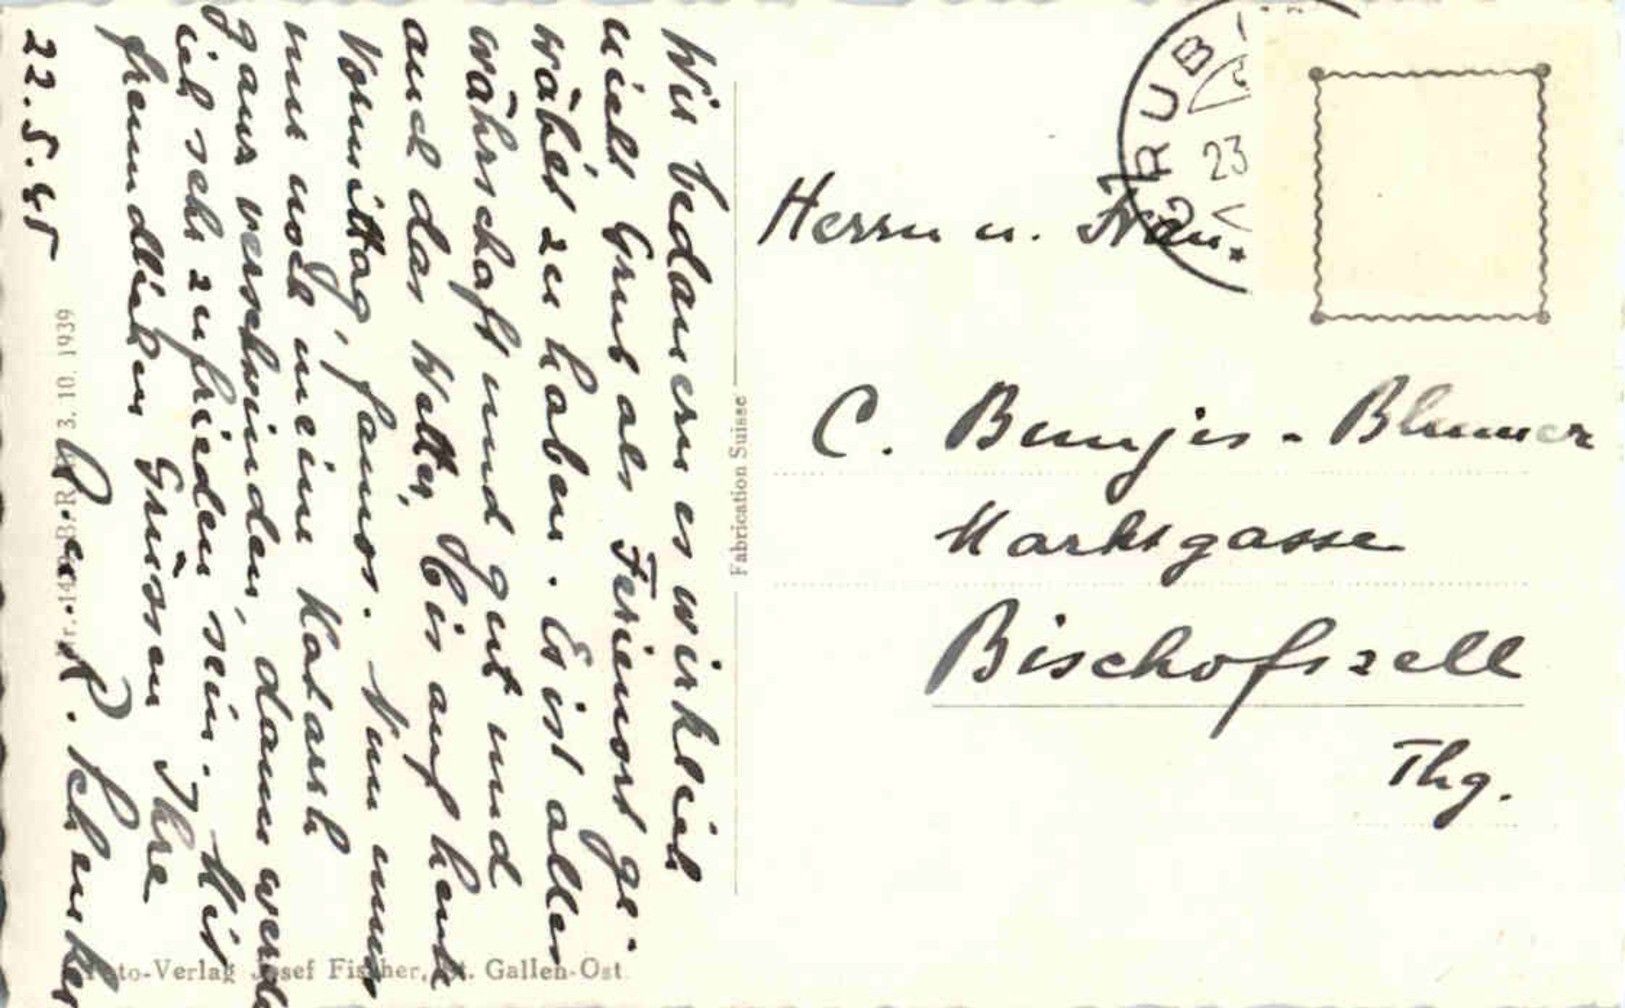 Wir bedauern es wirklich
nicht Grub als Ferienort ge-
wählt zu haben. Es ist alles
währschaft und gut und
auch das Wetter, bis auf heute
Vormittag, famos. Nun muss
nur noch meine Katarrh
ganz verschwinden, dann werde
ich sehr zufrieden sein. Mit
freundlichen Grüssen Ihre
R. Schenker
22.5.45
3. 10. 1939
Fabrication Suisse
Foto-Verlag Josef Fischer, St. Gallen-Ost
GRUB
23
V
Herrn u. Frau
C. Bunjes-Blumer
Marktgasse
Bischofszell
Thg.